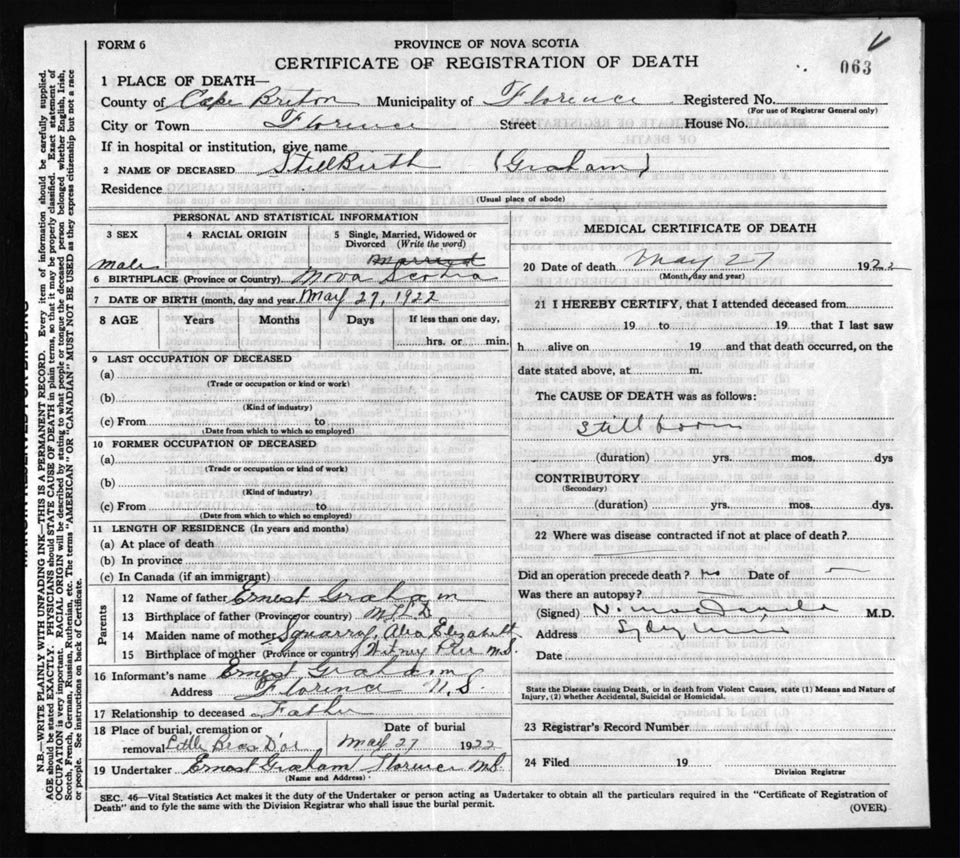 FORM 6
PROVINCE OF NOVA SCOTIA
CERTIFICATE OF REGISTRATION OF DEATH
063
1 PLACE OF DEATH—
County of Cape Breton Municipality of Florence Registered No.
(For use of Registrar General only)
City or Town Florence Street House No.
If in hospital or institution, give name
2 NAME OF DECEASED StillBirth (Graham)
Residence
(Usual place of abode)
PERSONAL AND STATISTICAL INFORMATION
3 SEX 4 RACIAL ORIGIN 5 Single, Married, Widowed or Divorced (Write the word)
male Married
6 BIRTHPLACE (Province or Country) Nova Scotia
7 DATE OF BIRTH (month, day and year) May 27, 1922
8 AGE Years Months Days If less than one day,
hrs. or min.
9 LAST OCCUPATION OF DECEASED
(a)
(Trade or occupation or kind or work)
(b)
(Kind of industry)
(c) From to
(Date from which to which so employed)
10 FORMER OCCUPATION OF DECEASED
(a)
(Trade or occupation or kind of work)
(b)
(Kind of industry)
(c) From to
(Date from which to which so employed)
11 LENGTH OF RESIDENCE (In years and months)
(a) At place of death
(b) In province
(c) In Canada (if an immigrant)
Parents
12 Name of father Ernest Graham
13 Birthplace of father (Province or country)
14 Maiden name of mother Elizabeth
15 Birthplace of mother (Province or country) Pier N.S.
16 Informant's name Ernest Graham
Address Florence N.S.
17 Relationship to deceased Father
18 Place of burial, cremation or Date of burial
removal Little Bras D'or May 27 1922
19 Undertaker Ernest Graham Florence N.S.
(Name and Address)
MEDICAL CERTIFICATE OF DEATH
20 Date of death May 27 1922
(Month, day and year)
21 I HEREBY CERTIFY, that I attended deceased from
19 to 19 that I last saw
h alive on 19 and that death occurred, on the
date stated above, at m.
The CAUSE OF DEATH was as follows:
Still born
(duration) yrs. mos. dys
CONTRIBUTORY
(Secondary)
(duration) yrs. mos. dys.
22 Where was disease contracted if not at place of death?
Did an operation precede death? no Date of —
Was there an autopsy?
(Signed) M.D.
Address Sydney Mines
Date
State the Disease causing Death, or in death from Violent Causes, state (1) Means and Nature of
Injury, (2) whether Accidental, Suicidal or Homicidal.
23 Registrar's Record Number
24 Filed 19
Division Registrar
SEC. 46—Vital Statistics Act makes it the duty of the Undertaker or person acting as Undertaker to obtain all the particulars required in the "Certificate of Registration of
Death" and to fyle the same with the Division Registrar who shall issue the burial permit.
(OVER)
N.B.—WRITE PLAINLY WITH UNFADING INK—THIS IS A PERMANENT RECORD. Every item of information should be carefully supplied.
AGE should be stated EXACTLY. PHYSICIANS should STATE CAUSE OF DEATH in plain terms, so that it may be properly classified. Exact statement of
OCCUPATION is very important. RACIAL ORIGIN will be described by stating to what people or tongue the deceased person belonged whether English, Irish,
Scotch, French, German, Russian, Ruthenian, etc. The terms "AMERICAN" OR "CANADIAN" MUST NOT BE USED as they express citizenship but not a race
or people. See instructions on back of Certificate.